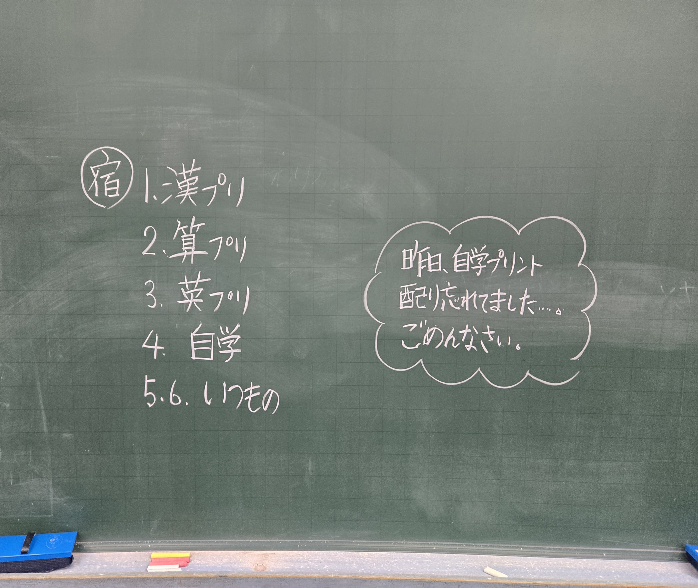 宿
1.漢プリ
2.算プリ
3.英プリ
4.自学
5.6.いつもの
昨日、自学プリント
配り忘れてました…。
ごめんなさい。